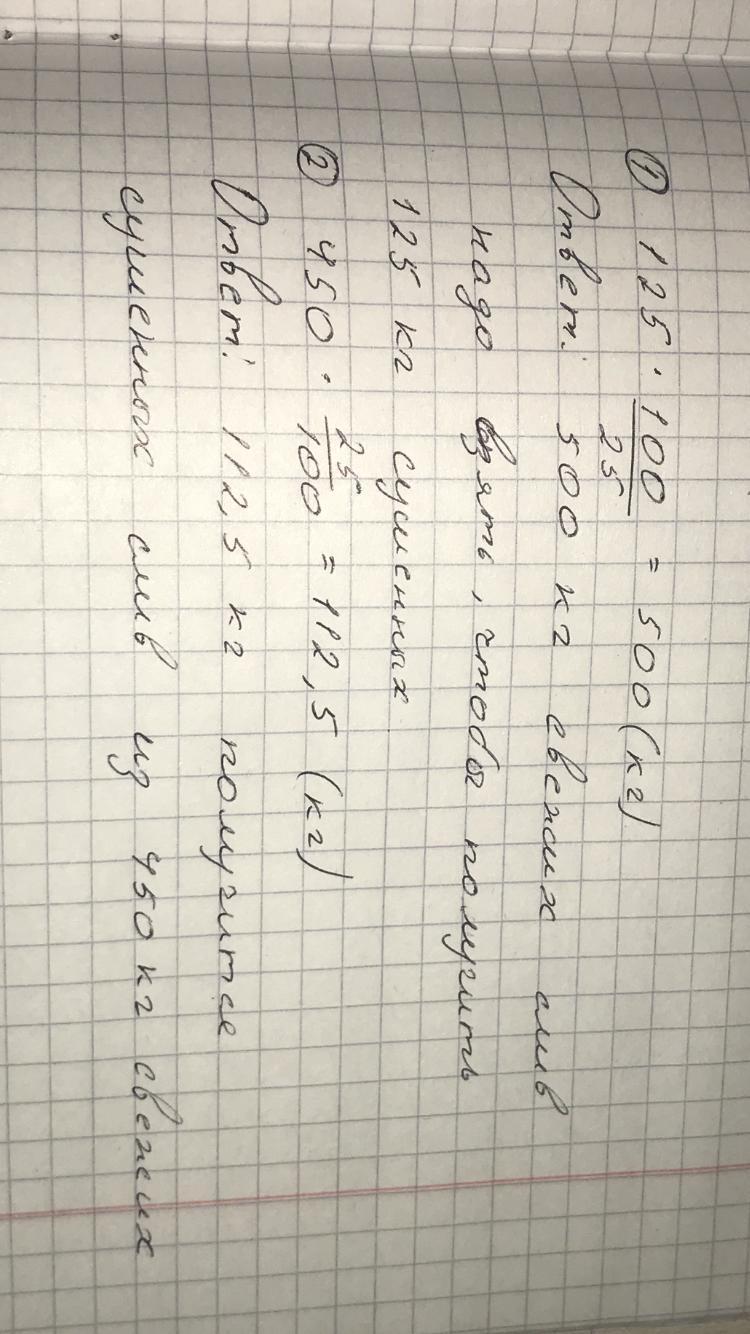 ① 125 · 100/25 = 500 (кг)
Ответ: 500 кг свежих слив
надо взять, чтобы получить
125 кг сушенных
② 450 · 25/100 = 112,5 (кг)
Ответ: 112,5 кг получится
сушенных слив из 450 кг свежих